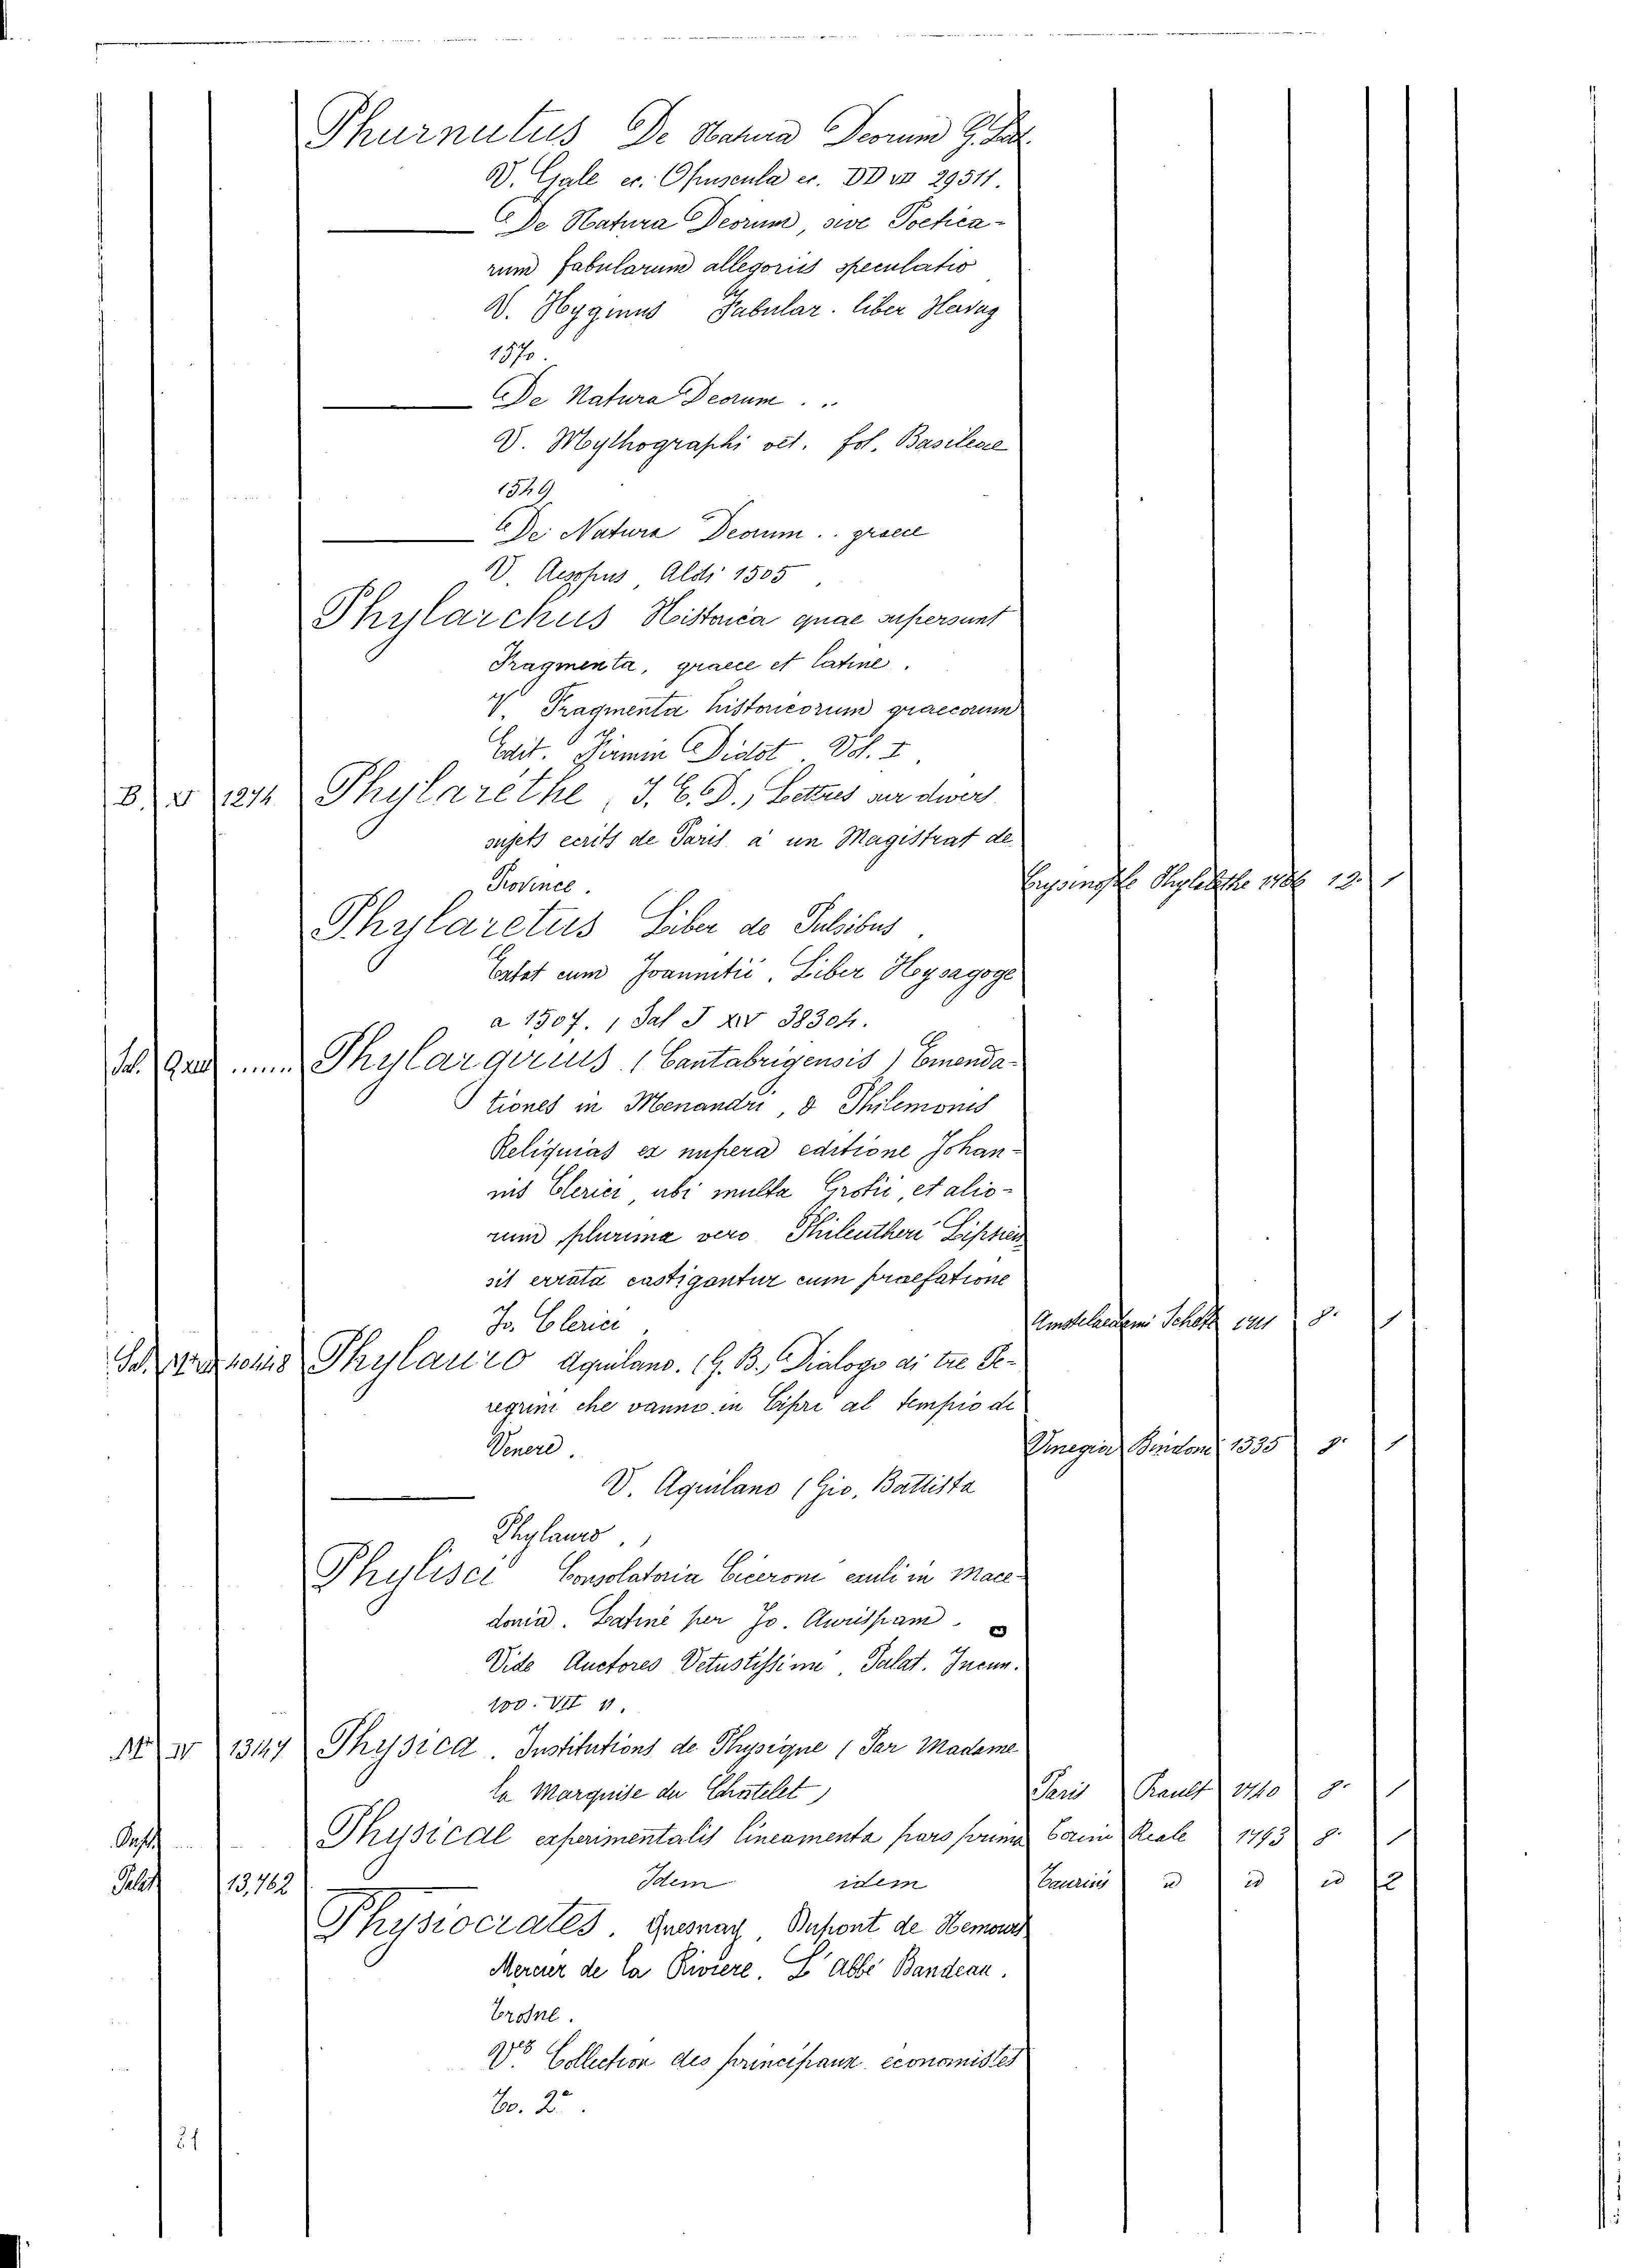 Phurnutus De Natura Deorum G. Lat.
V. Gale ec. Opuscula ec. DD VII 29511.
De Natura Deorum, sive Poetica-
rum fabularum allegoriis speculatio
V. Hyginus Fabular. liber Hervag
1570.
De Natura Deorum . . .
V. Mythographi vet. fol. Basileae
1549
De Natura Deorum . . graece
V. Aesopus Aldi 1505.
Phylarchus Historica quae supersunt
Fragmenta, graece et latine.
V. Fragmenta historicorum graecorum
Edit. Firmin Didot Vol. I.
B. V 1274 Phylarèthe, J. E. D., Lettres sur divers
sujets ecrits de Paris à un Magistrat de
Province. 12. 1
Phylaretus Liber de Pulsibus.
Extat cum Joannitii, Liber Hysagoge
a 1507. Sal J XIV 38304.
Phylargyrius (Cantabrigensis) Emenda-
tiones in Menandri, & Philemonis
Reliquias ex nupera editione Johan-
nis Clerici, ubi multa Grotii, et alio-
rum plurima vero Phileutheri Lipsien
sis errata castigantur cum praefatione
Jo. Clerici. 8. 1
Phylauro Aquilano. (G. B.) Dialogo di tre Pe-
regrini che vanno in Cipri al tempio di
Venere. Vinegia Bindoni 1535 8. 1
V. Aquilano (Gio. Battista
Phylauro.
Phylisci Consolatoria Ciceroni exuli in Mace-
donia. Latine per Jo. Aurispam.
Vide Auctores Vetustissimi, Palat. Incun.
100. VII 11.
IV 13147 Physica. Institutions de Physique (Par Madame
la Marquise du Chatelet) Paris Prault 1740 8. 1
Physicae experimentalis lineamenta pars prima Reale 1793 8. 1
Palat 13,762 Idem idem Taurini id id id 2
Physiocrates. Quesnay, Dupont de Nemours
Mercier de la Riviere. L'abbé Bandeau.
Trosne.
Collection des principaux économistes
To. 2°.
21